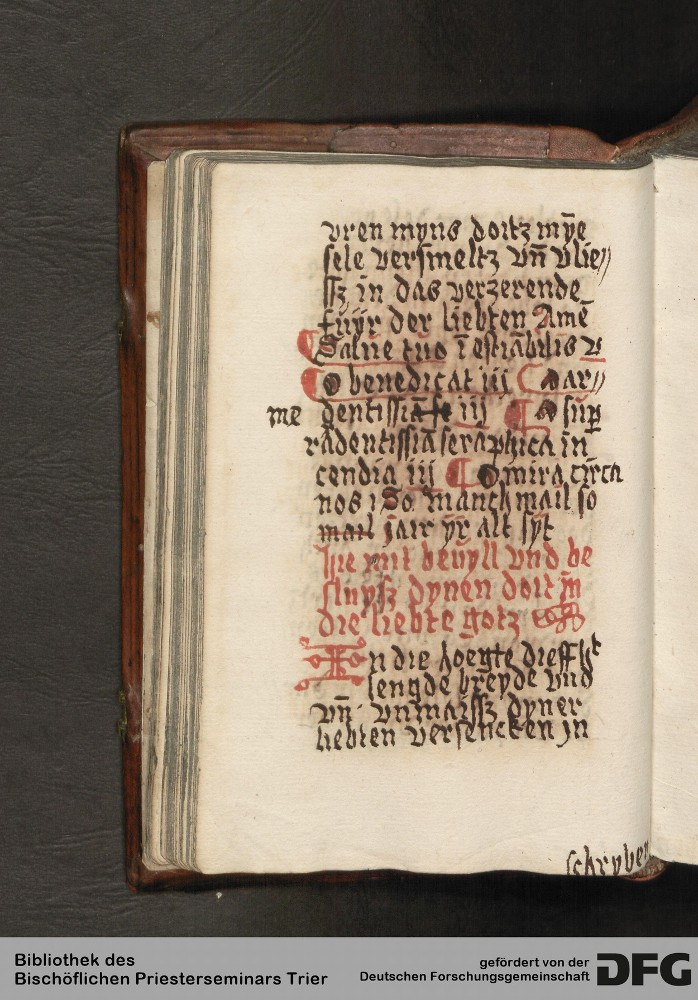 vren myns doitz mÿe
sele versmeltz vn̄ vlie⸗
ssz in das verzerende
fuÿr der liebten Amē
Salue tuo
O benedicat iij O ar⸗
me dentissiā iij O sup
radentissiā seraphica in
cendia iij O mira circa
nos ꝛ So manch mail so
mail jair yr alt sÿt
hie mit beuÿll vnd be
sluysz dynen doit jn
die liebte gotz
In die hoegte dieff
lengde breyde vnd
vn̄ vnmaissz dyner
liebten versencken jn
schryben
Bibliothek des
Bischöflichen Priesterseminars Trier
gefördert von der
Deutschen Forschungsgemeinschaft
DFG